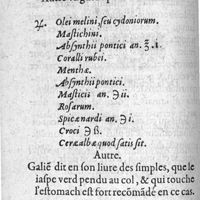 ♃. Olei melini, seu cydoniorum.
Mastichini.
Absynthii pontici an. ℥.i.
Coralli rubei.
Menthæ.
Absyntii pontici.
Masticii an. ℈ ii.
Rosarum.
Spicænardi an. ℈ i.
Croci ℈ ß.
Ceræ albæ quod satis sit.
Autre.
Galiẽ dit en son liure des simples, que le
iaspe verd pendu au col, & qui touche
l'estomach est fort recõmãdé en ce cas.